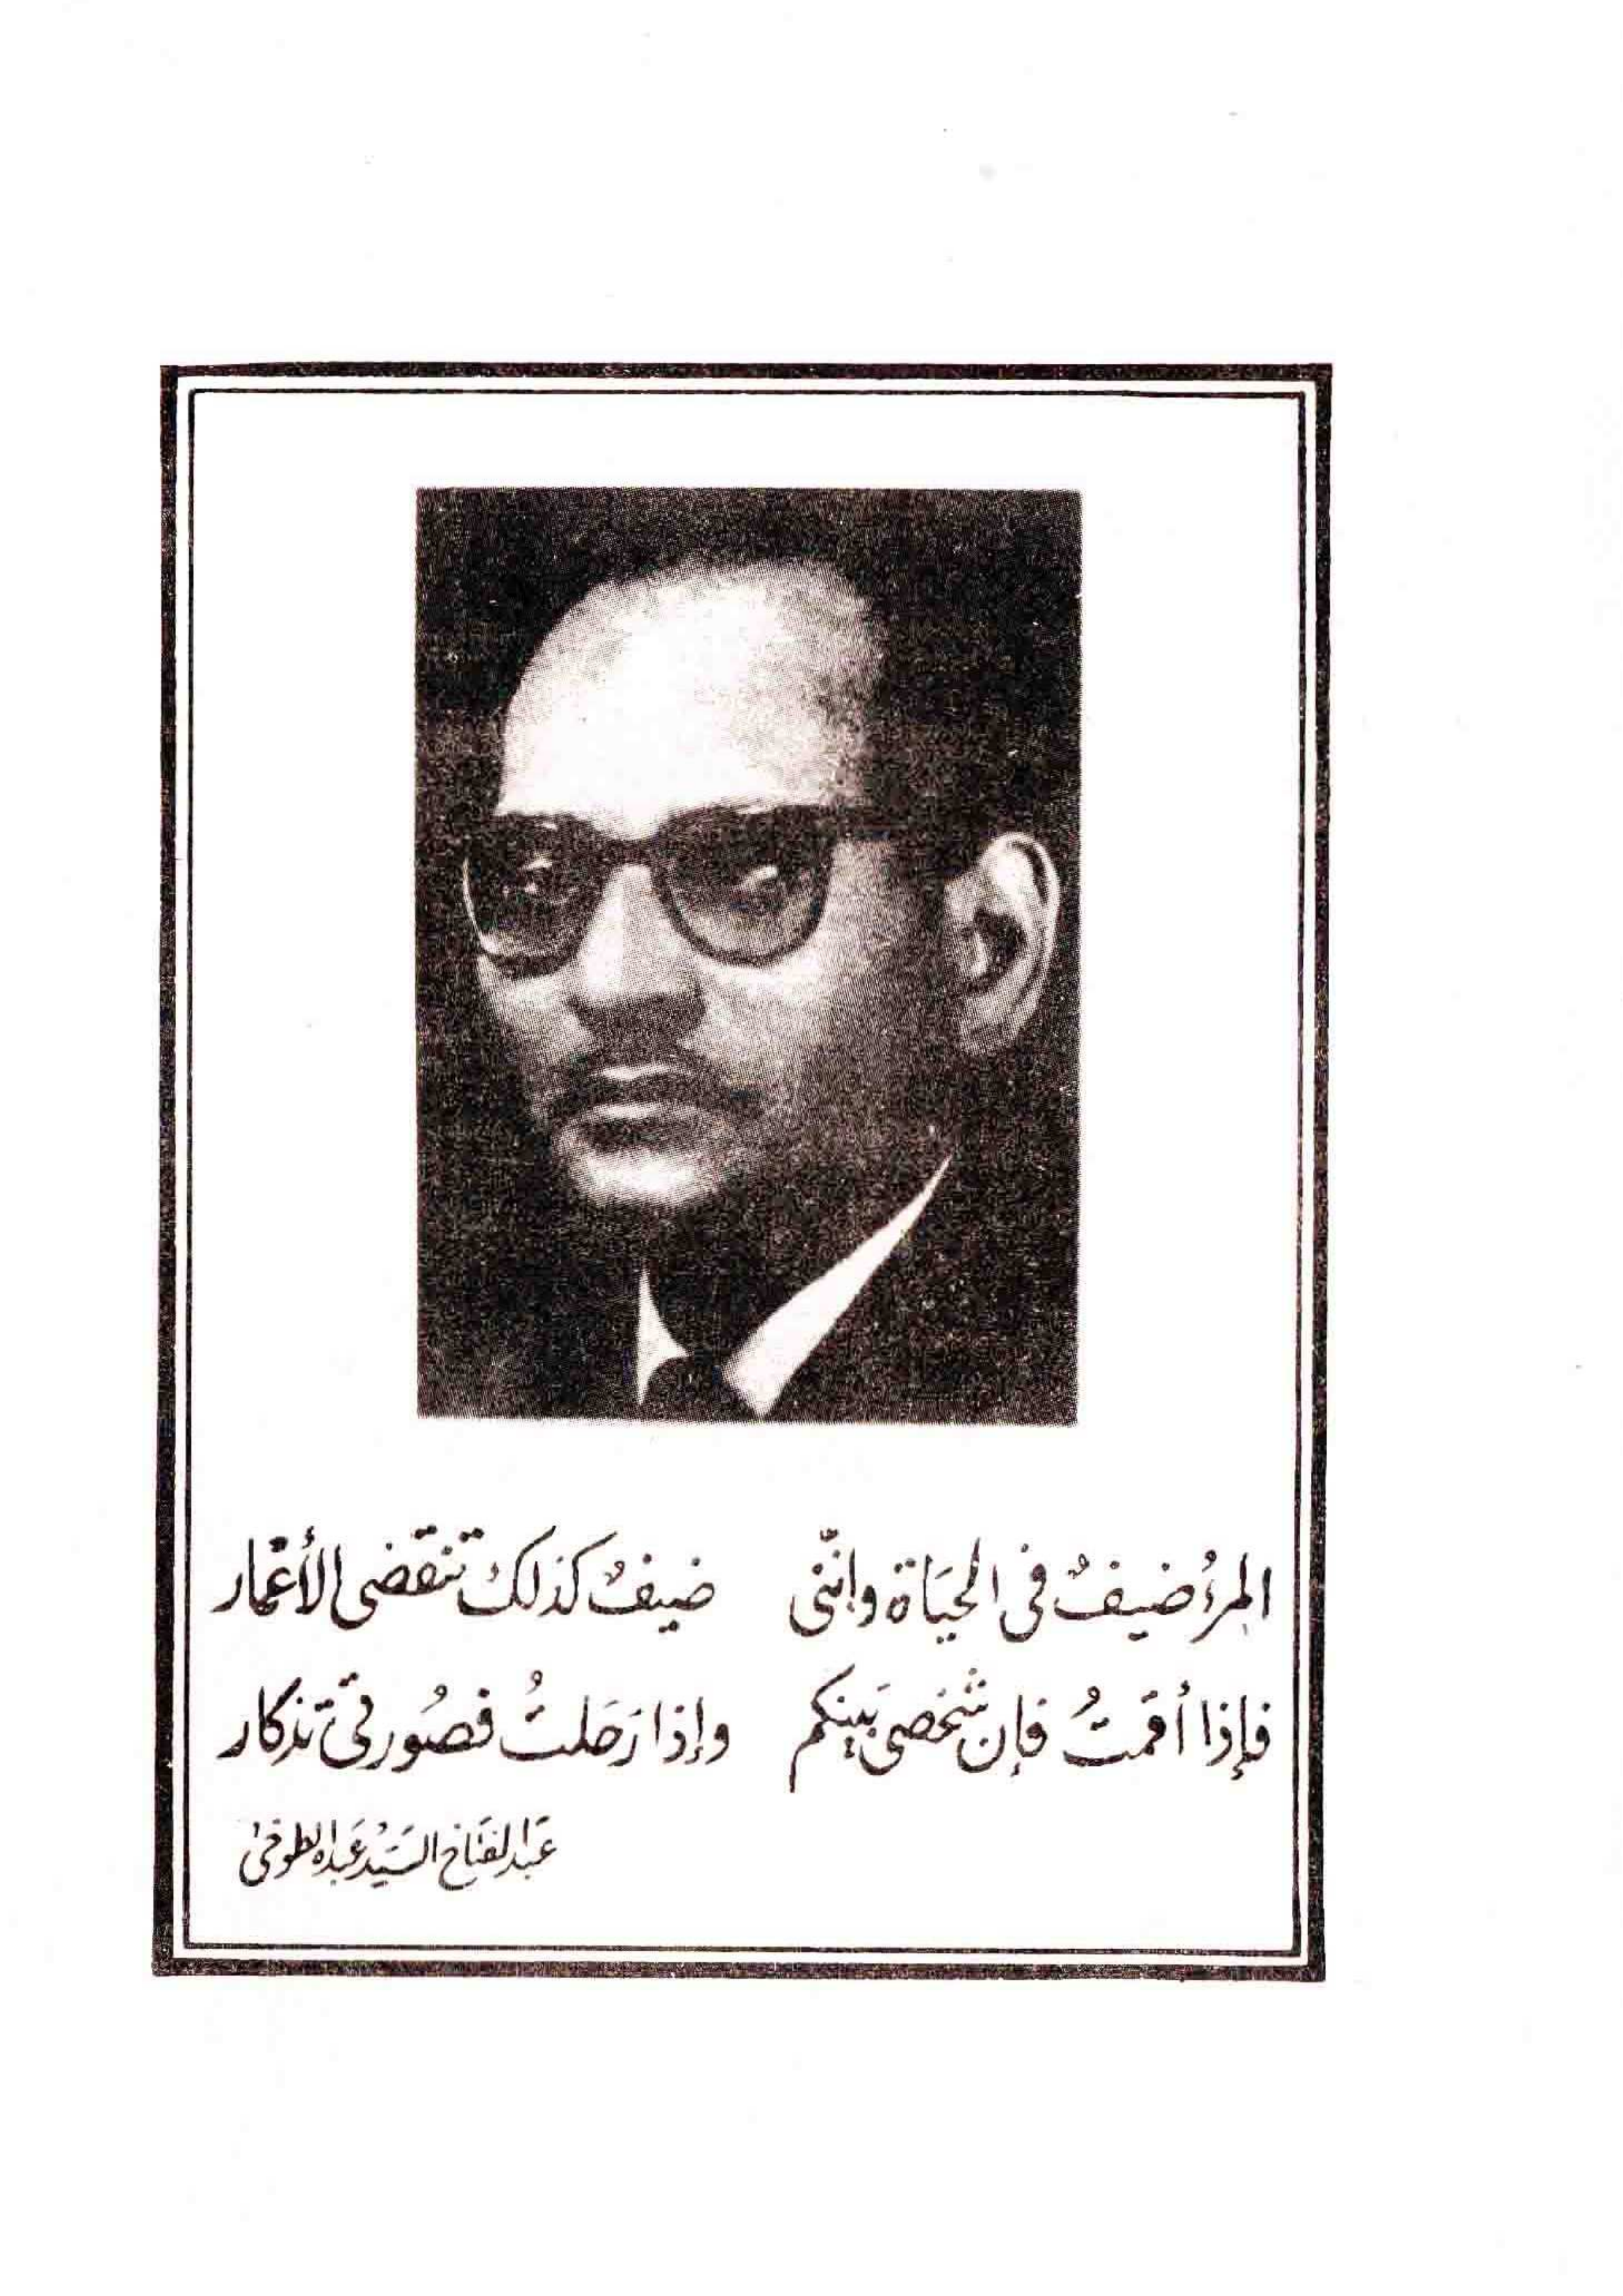 المرءُ ضيفٌ فى الحيَاة وانّنى ضيفٌ كذلك تنقضى الأعمار
فإذا أقمتُ فإن شخصى بَينكم وإذا رَحلتُ فصُورتى تذكار
عَبد الفتاح السَيّد عَبده الطوخى